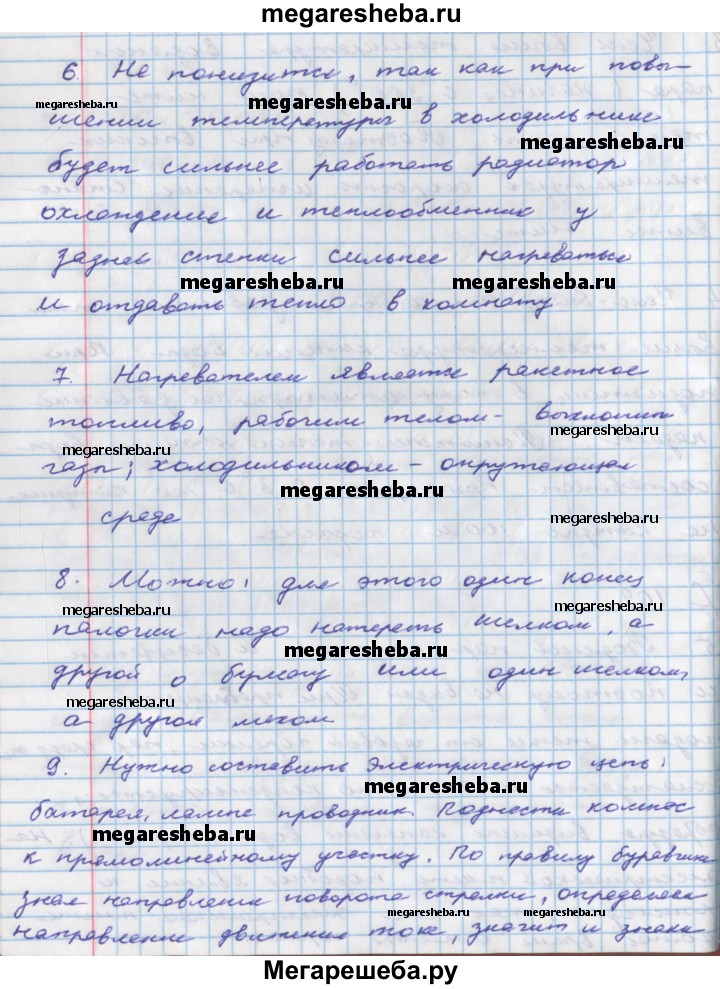 megaresheba.ru
6. Не понизится, так как при повы-
megaresheba.ru
megaresheba.ru
шении температуры в холодильнике
megaresheba.ru
будет сильнее работать радиатор
охлаждение и теплообменник у
задней стенки сильнее нагреваться
megaresheba.ru
megaresheba.ru
и отдавать тепло в комнату
7. Нагревателем является ракетное
топливо, рабочим телом- выхлопные
megaresheba.ru
газы; холодильником - окружающая
megaresheba.ru
среда
megaresheba.ru
8. Можно: для этого один конец
megaresheba.ru
megaresheba.ru
палочки надо натереть шелком, а
megaresheba.ru
другой о бумагу или один шелком,
megaresheba.ru
а другой мехом
9. Нужно составить электрическую цепь:
megaresheba.ru
батарея, лампа проводник. Поднести компас
megaresheba.ru
к прямолинейному участку. По правилу буравчика
зная направления поворота стрелки, определяем
megaresheba.ru
megaresheba.ru
направление движения тока, значит и знаки
Мегарешеба.ру